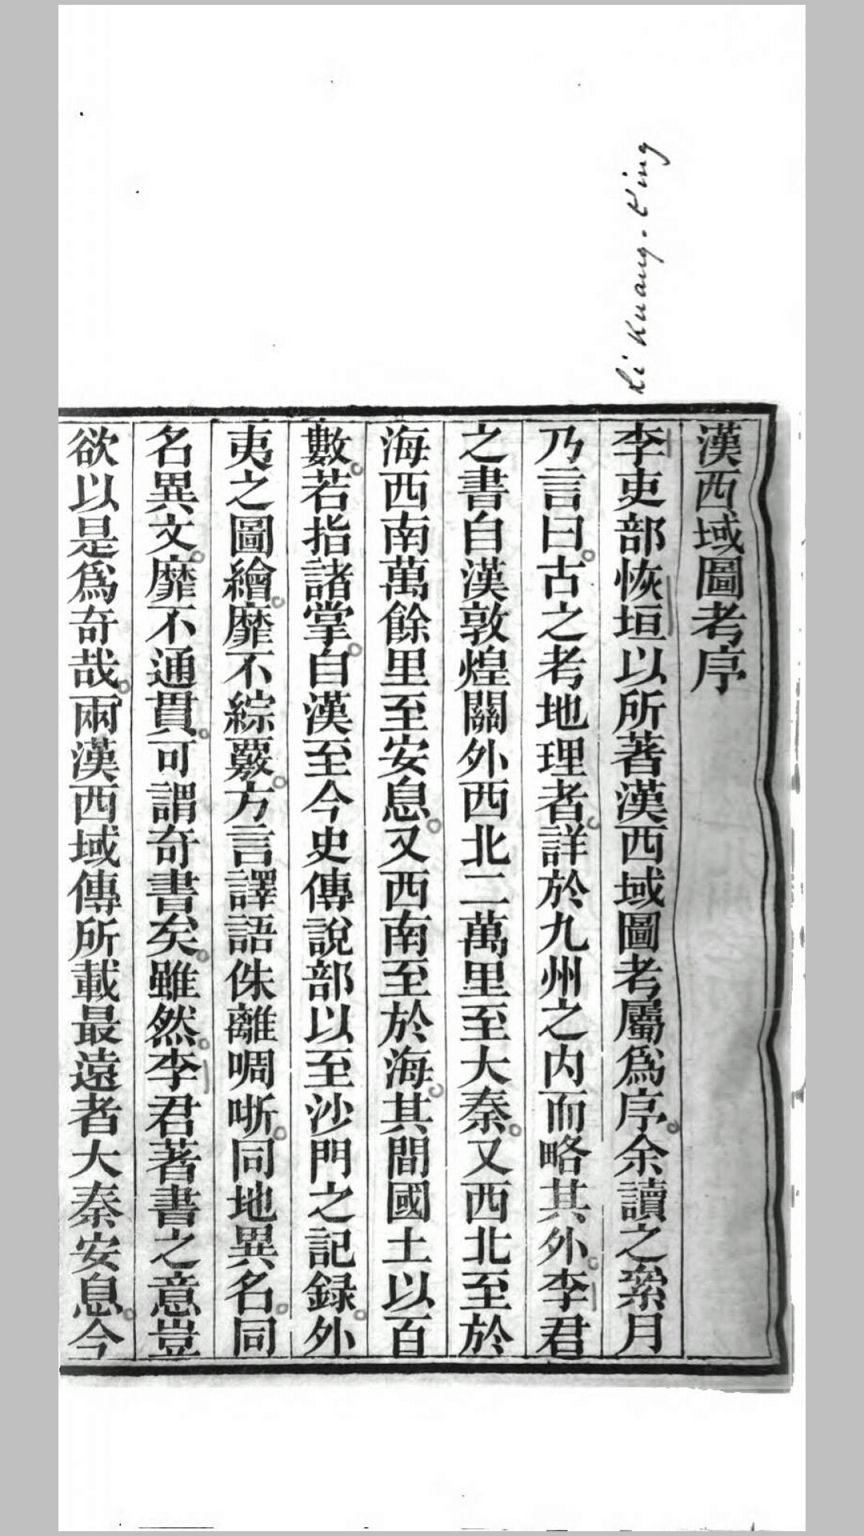 Li Kuang-t'ing
漢西域圖考序
李吏部恢垣以所著漢西域圖考屬爲序。余讀之絫月
乃言曰。古之考地理者。詳於九州之内而略其外。李君
之書自漢敦煌關外西北二萬里至大秦。又西北至於
海西南萬餘里至安息。又西南至於海。其間國土以百
數。若指諸掌。自漢至今史傳說部以至沙門之記録。外
夷之圖繪。靡不綜覈。方言譯語侏離啁哳。同地異名。同
名異文。靡不通貫。可謂奇書矣。雖然。李君著書之意豈
欲以是爲奇哉。兩漢西域傳所載最遠者大秦安息。今